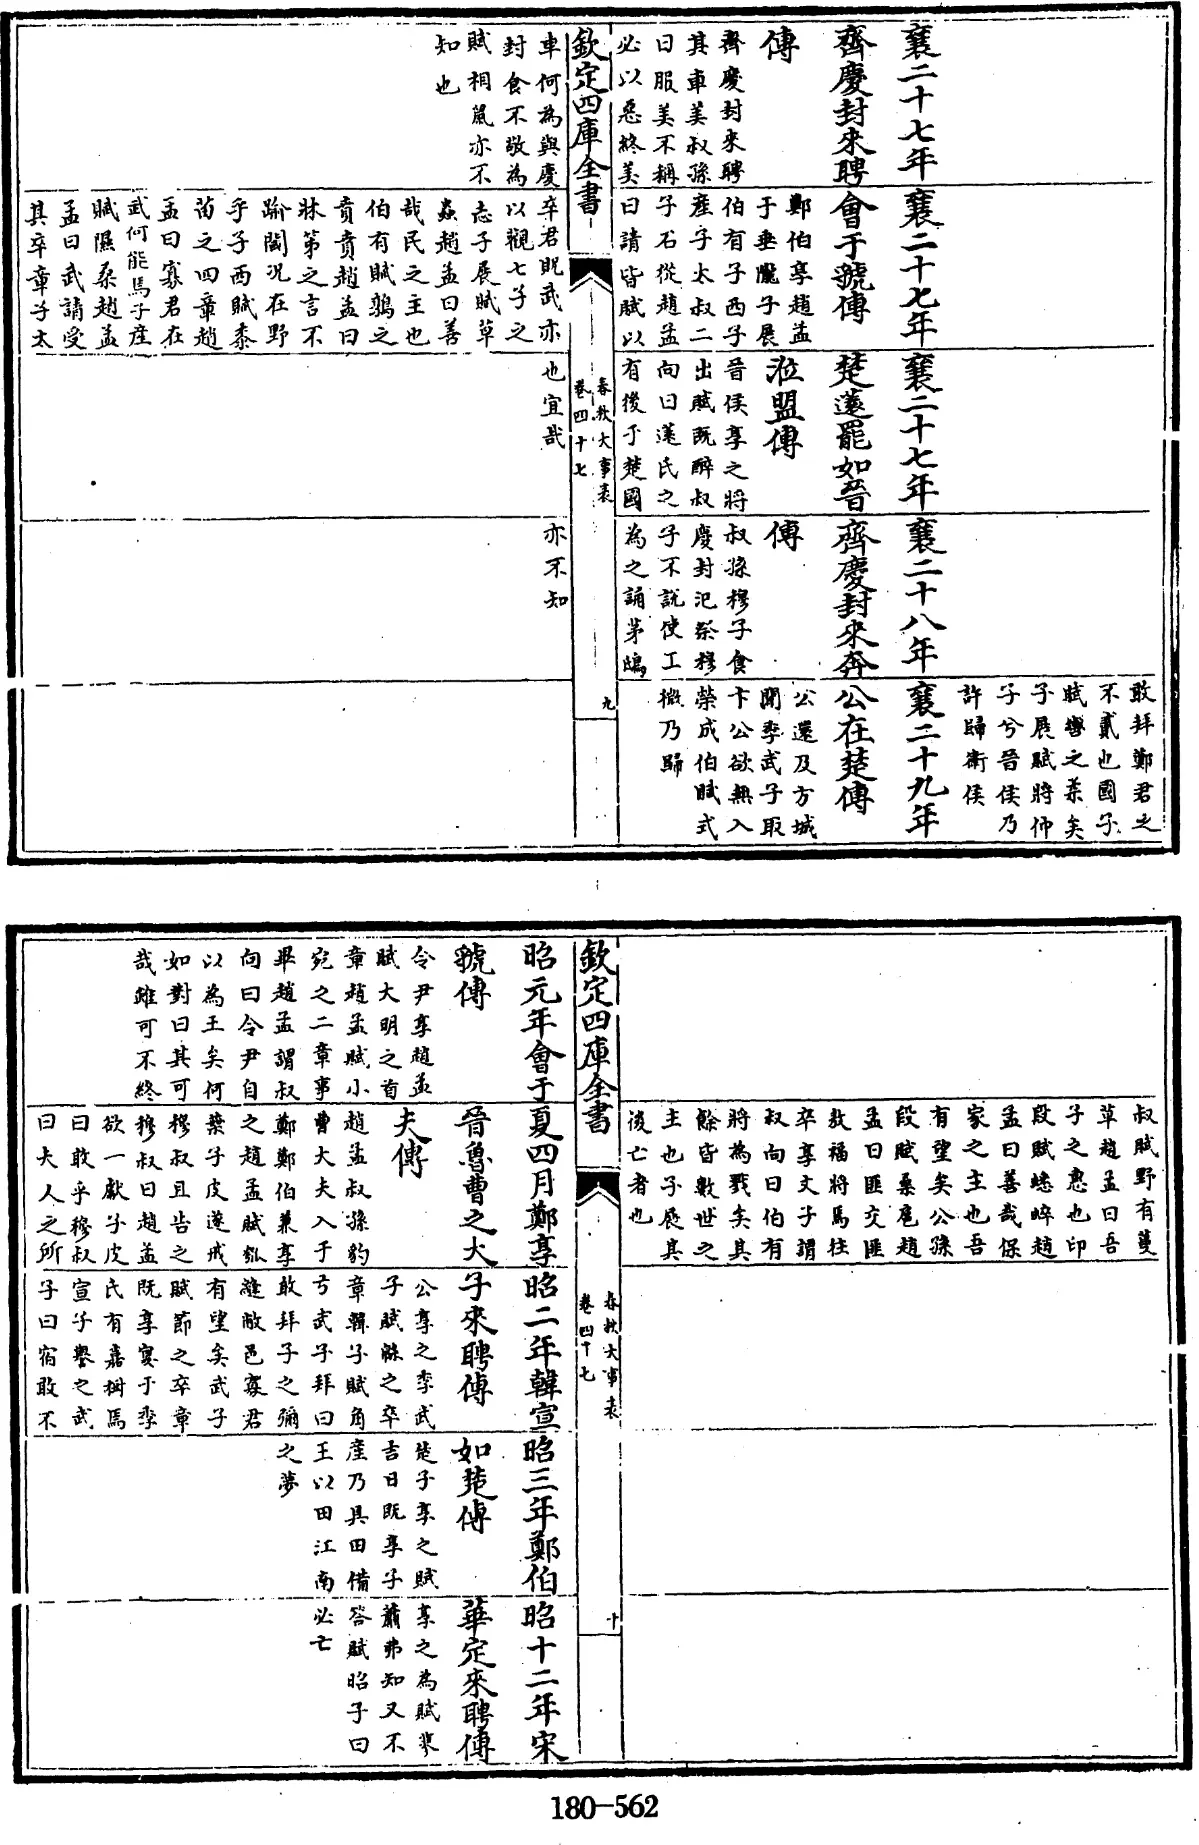 襄二十七年
齊慶封來聘
傳
齊慶封來聘
其車美叔孫
曰服美不稱
必以惡終美
車何為與慶
封食不敬為
賦相鼠亦不
知也
襄二十七年
會于虢傳
鄭伯享趙孟
于垂隴子展
伯有子西子
產子太叔二
子石從趙孟
曰請皆賦以
卒君貺武亦
以觀七子之
志子展賦草
蟲趙孟曰善
哉民之主也
伯有賦鶉之
賁賁趙孟曰
牀第之言不
踰閾況在野
乎子西賦黍
苗之四章趙
孟曰寡君在
武何能焉子產
賦隰桑趙孟
孟曰武請受
其卒章子太
襄二十七年
楚薳罷如晉
涖盟傳
晉侯享之將
出賦既醉叔
向曰薳氏之
有後于楚國
也宜哉
襄二十八年
齊慶封來奔
傳
叔孫穆子食
慶封氾祭穆
子不說使工
為之誦茅鴟
亦不知
敢拜鄭君之
不貳也國子
賦轡之柔矣
子展賦將仲
子兮晉侯乃
許歸衛侯
襄二十九年
公在楚傳
公還及方城
聞季武子取
卞公欲無入
榮成伯賦式
微乃歸
欽定四庫全書
春秋大事表
卷四十七
九
昭元年會于
虢傳
令尹享趙孟
賦大明之首
章趙孟賦小
宛之二章事
畢趙孟謂叔
向曰令尹自
以為王矣何
如對曰其可
哉雖可不終
叔賦野有蔓
草趙孟曰吾
子之惠也印
段賦蟋蟀趙
孟曰善哉保
家之主也吾
有望矣公孫
段賦桑扈趙
孟曰匪交匪
敖福將焉往
卒享文子謂
叔向曰伯有
將為戮矣其
餘皆數世之
主也子展其
後亡者也
夏四月鄭享
晉魯曹之大
夫傳
趙孟叔孫豹
曹大夫入于
鄭鄭伯兼享
之趙孟賦瓠
葉子皮遂戒
穆叔且告之
穆叔曰趙孟
欲一獻子皮
曰敢乎穆叔
曰夫人之所
昭二年韓宣
子來聘傳
公享之季武
子賦緜之卒
章韓子賦角
弓武子拜曰
敢拜子之彌
縫敝邑寡君
有望矣武子
賦節之卒章
既享宴于季
氏有嘉樹焉
宣子譽之武
子曰宿敢不
昭三年鄭伯
如楚傳
楚子享之賦
吉日既享子
產乃具田備
王以田江南
之夢
昭十二年宋
華定來聘傳
享之為賦蓼
蕭弗知又不
答賦昭子曰
必亡
欽定四庫全書
春秋大事表
卷四十七
十
180-562